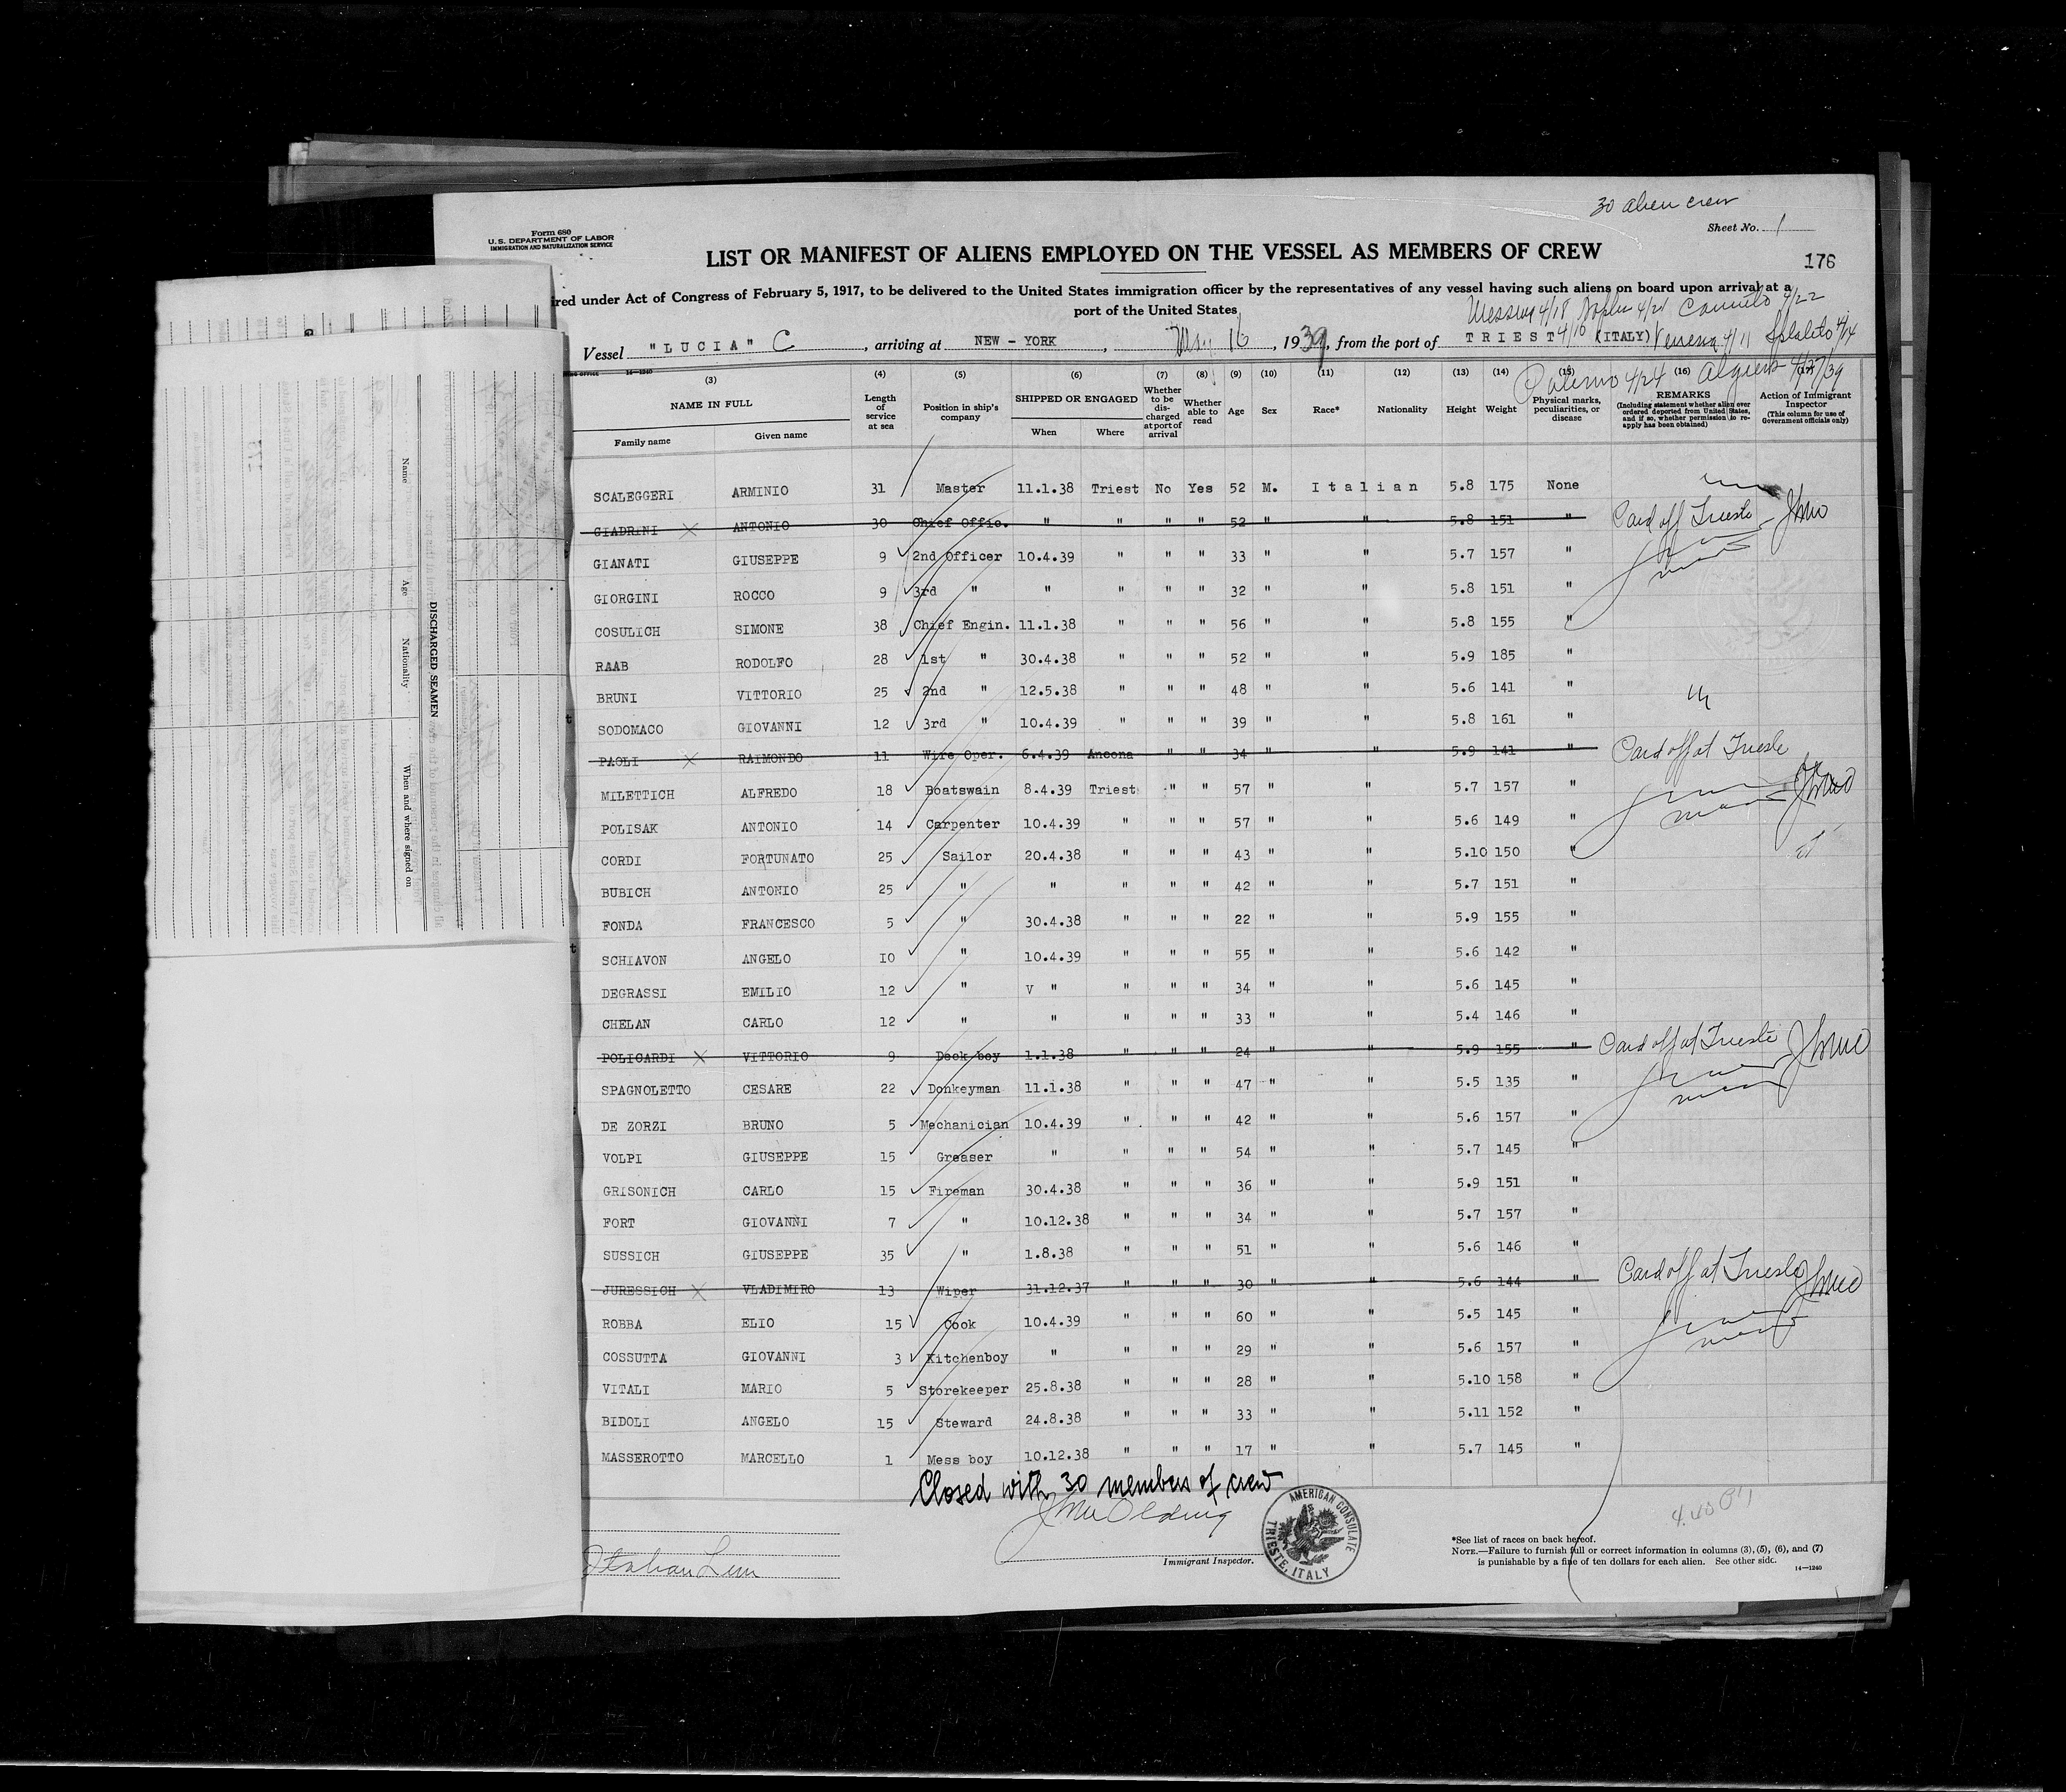 30 alien crew
Form 680
U.S. DEPARTMENT OF LABOR
IMMIGRATION AND NATURALIZATION SERVICE
Sheet No. 1
LIST OR MANIFEST OF ALIENS EMPLOYED ON THE VESSEL AS MEMBERS OF CREW
176
red under Act of Congress of February 5, 1917, to be delivered to the United States immigration officer by the representatives of any vessel having such aliens on board upon arrival at a
port of the United States
Messina 4/18 Naples 4/21 4/22
Vessel "LUCIA" C, arriving at NEW - YORK, May 16, 1939, from the port of TRIEST 4/16 (ITALY) 4/11 Spalato 4/14
Palermo 4/24 Algiers 4/27/39
(3) (4) (5) (6) (7) (8) (9) (10) (11) (12) (13) (14) (15) (16)
NAME IN FULL
Family name Given name
Length of service at sea
Position in ship's company
SHIPPED OR ENGAGED
When Where
Whether to be discharged at port of arrival
Whether able to read
Age Sex Race* Nationality Height Weight
Physical marks, peculiarities, or disease
REMARKS
(Including statement whether alien ever ordered deported from United States, and if so, whether permission to reapply has been obtained)
Action of Immigrant Inspector
(This column for use of Government officials only)
SCALEGGERI ARMINIO 31 Master 11.1.38 Triest No Yes 52 M. Italian 5.8 175 None
GIADRINI ANTONIO 30 Chief Offic. " " " " 52 " " 5.8 151 " Card off Trieste
GIANATI GIUSEPPE 9 2nd Officer 10.4.39 " " " 33 " " 5.7 157 "
GIORGINI ROCCO 9 3rd " " " " " 32 " " 5.8 151 "
COSULICH SIMONE 38 Chief Engin. 11.1.38 " " " 56 " " 5.8 155 "
RAAB RODOLFO 28 1st " 30.4.38 " " " 52 " " 5.9 185 "
BRUNI VITTORIO 25 2nd " 12.5.38 " " " 48 " " 5.6 141 "
SODOMACO GIOVANNI 12 3rd " 10.4.39 " " " 39 " " 5.8 161 "
PAOLI RAIMONDO 11 Wire Oper. 6.4.39 Ancona " " 34 " " 5.9 141 " Card off at Trieste
MILETTICH ALFREDO 18 Boatswain 8.4.39 Triest " " 57 " " 5.7 157 "
POLISAK ANTONIO 14 Carpenter 10.4.39 " " " 57 " " 5.6 149 "
CORDI FORTUNATO 25 Sailor 20.4.38 " " " 43 " " 5.10 150 "
BUBICH ANTONIO 25 " " " " " 42 " " 5.7 151 "
FONDA FRANCESCO 5 " 30.4.38 " " " 22 " " 5.9 155 "
SCHIAVON ANGELO IO " 10.4.39 " " " 55 " " 5.6 142 "
DEGRASSI EMILIO 12 " V " " " " 34 " " 5.6 145 "
CHELAN CARLO 12 " " " " " 33 " " 5.4 146 "
POLICARDI VITTORIO 9 Deck boy 1.1.38 " " " 24 " " 5.9 155 " Card off at Trieste
SPAGNOLETTO CESARE 22 Donkeyman 11.1.38 " " " 47 " " 5.5 135 "
DE ZORZI BRUNO 5 Mechanician 10.4.39 " " " 42 " " 5.6 157 "
VOLPI GIUSEPPE 15 Greaser " " " " 54 " " 5.7 145 "
GRISONICH CARLO 15 Fireman 30.4.38 " " " 36 " " 5.9 151 "
FORT GIOVANNI 7 " 10.12.38 " " " 34 " " 5.7 157 "
SUSSICH GIUSEPPE 35 " 1.8.38 " " " 51 " " 5.6 146 "
JURESSICH VLADIMIRO 13 Wiper 31.12.37 " " " 30 " " 5.6 144 " Card off at Trieste
ROBBA ELIO 15 Cook 10.4.39 " " " 60 " " 5.5 145 "
COSSUTTA GIOVANNI 3 Kitchenboy " " " " 29 " " 5.6 157 "
VITALI MARIO 5 Storekeeper 25.8.38 " " " 28 " " 5.10 158 "
BIDOLI ANGELO 15 Steward 24.8.38 " " " 33 " " 5.11 152 "
MASSEROTTO MARCELLO 1 Mess boy 10.12.38 " " " 17 " " 5.7 145 "
Closed with 30 members of crew
Immigrant Inspector.
AMERICAN CONSULATE
TRIESTE, ITALY
Italian Line
*See list of races on back hereof.
NOTE.—Failure to furnish full or correct information in columns (3), (5), (6), and (7)
is punishable by a fine of ten dollars for each alien. See other side.
14—1240
DISCHARGED SEAMEN
Name Age Nationality When and where signed on